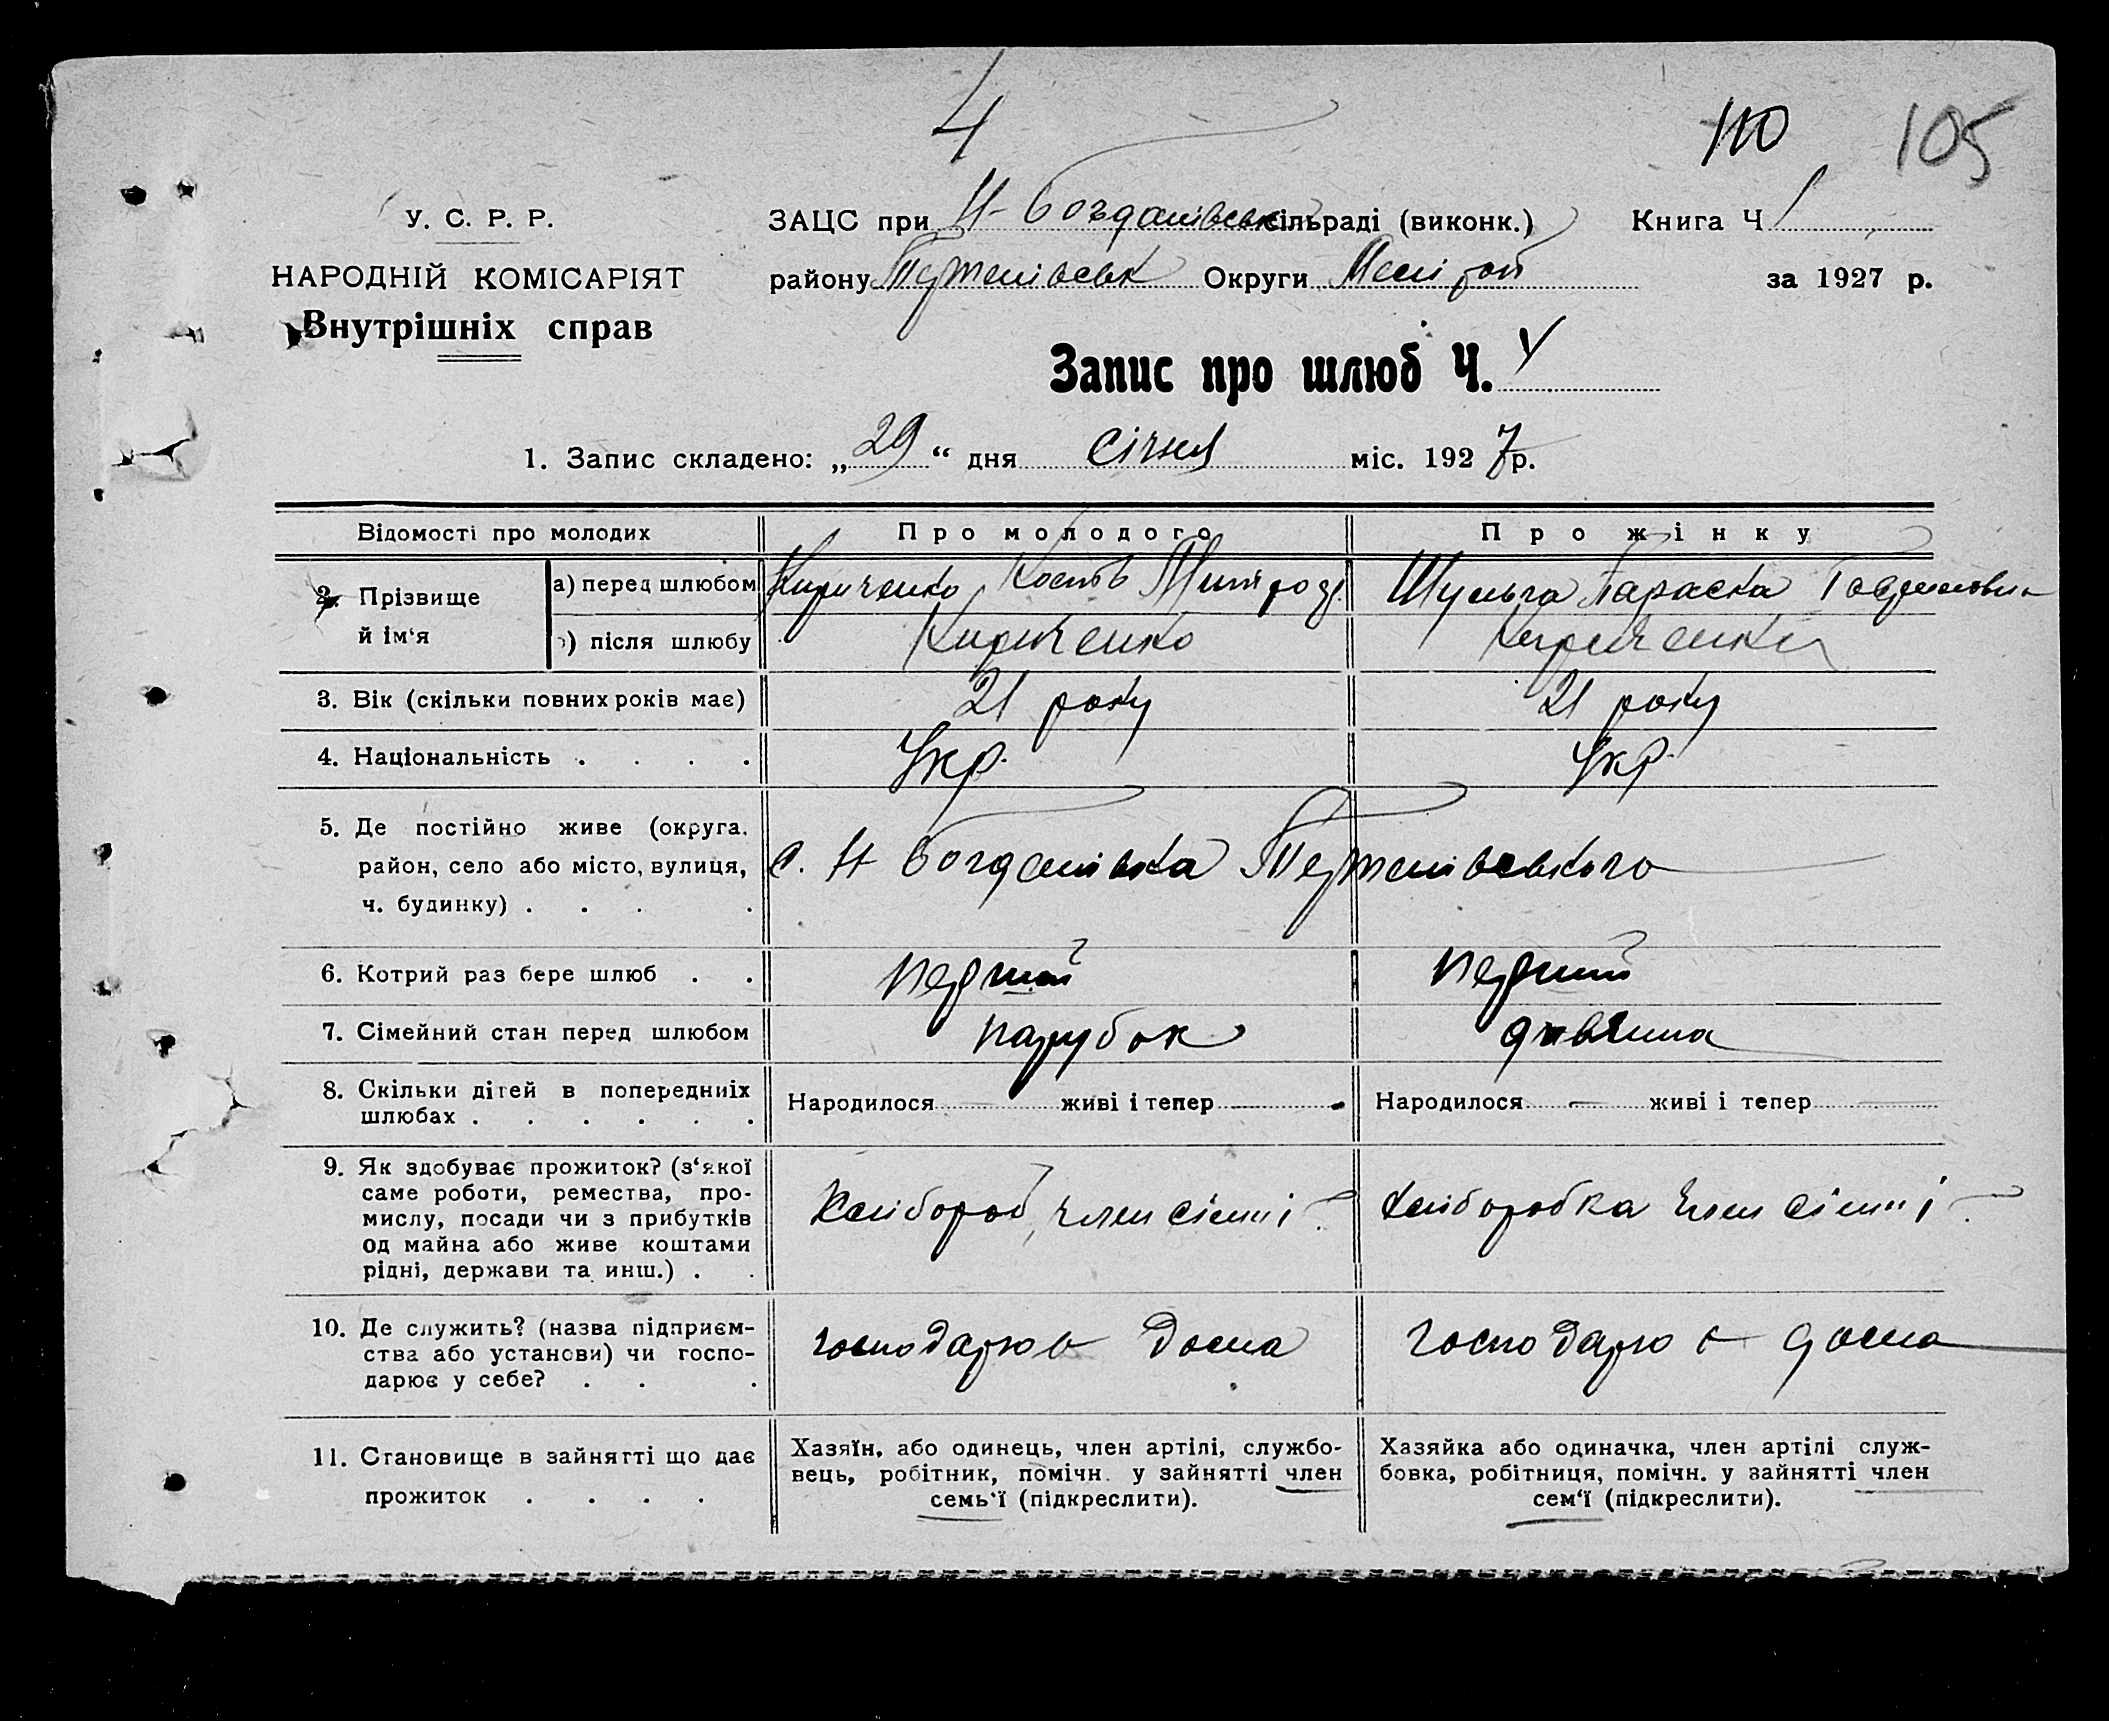 4
110 105
У. С. Р. Р.
НАРОДНІЙ КОМІСАРІЯТ
Внутрішніх справ
ЗАЦС при Н-Богданівськ сільраді (виконк.) Книга Ч 1
району Округи за 1927 р.
Запис про шлюб Ч. 4
1. Запис складено: „29“ дня січня міс. 1927 р.
Відомості про молодих Про молодого Про жінку
2. Прізвище й ім‘я
а) перед шлюбом Кириченко Шульга Параска
б) після шлюбу Кириченко Кириченко
3. Вік (скільки повних років має) 21 року 21 року
4. Національність . . . . Укр. Укр.
5. Де постійно живе (округа,
район, село або місто, вулиця, с. Н Богданівка
ч. будинку) . . . .
6. Котрий раз бере шлюб . . перший перший
7. Сімейний стан перед шлюбом парубок дивчина
8. Скільки дітей в попередниіх
шлюбах . . . . . . Народилося — живі і тепер — Народилося — живі і тепер —
9. Як здобуває прожиток? (з‘якої
саме роботи, ремества, про-
мислу, посади чи з прибутків хлібороб, член сімиі хлібробка член сімиі
од майна або живе коштами
рідні, держави та инш.) . .
10. Де служить? (назва підприєм-
ства або установи) чи госпо- господарює дома господарює дома
дарює у себе? . . .
11. Становище в зайнятті що дає
прожиток . . . .
Хазяїн, або одинець, член артілі, службо-
вець, робітник, помічн. у зайнятті член
семь‘ї (підкреслити).
Хазяйка або одиначка, член артілі служ-
бовка, робітниця, помічн. у зайнятті член
сем‘ї (підкреслити).